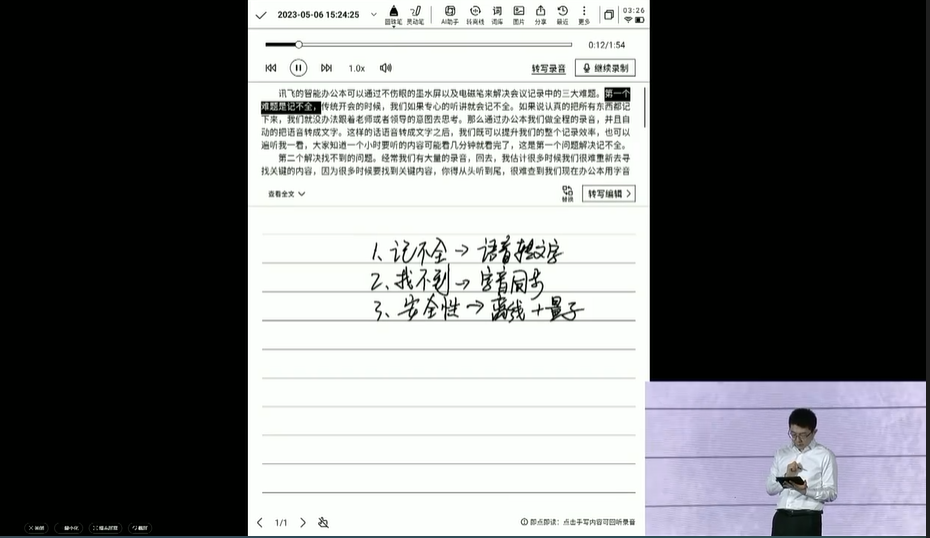 2023-05-06 15:24:25
圆珠笔 灵动笔 AI助手 转离线 词库 图片 分享 最近 更多
03:26
0:12/1:54
1.0x 转写录音 继续录制
讯飞的智能办公本可以通过不伤眼的墨水屏以及电磁笔来解决会议记录中的三大难题。第一个
难题是记不全，传统开会的时候，我们如果专心的听讲就会记不全。如果说认真的把所有东西都记
下来，我们就没办法跟着老师或者领导的意图去思考。那么通过办公本我们做全程的录音，并且自
动的把语音转成文字。这样的话语音转成文字之后，我们既可以提升我们的整个记录效率，也可以
遍听我一看，大家知道一个小时要听的内容可能看几分钟就看完了，这是第一个问题解决记不全。
第二个解决找不到的问题。经常我们有大量的录音，回去，我估计很多时候我们很难重新去寻
找关键的内容，因为很多时候要找到关键内容，你得从头听到尾，很难查到我们现在办公本用字音
查看全文 替换 转写编辑
1、记不全→语音转文字
2、找不到→字音同步
3、安全性→离线+量子
1/1
即点即读：点击手写内容可回听录音